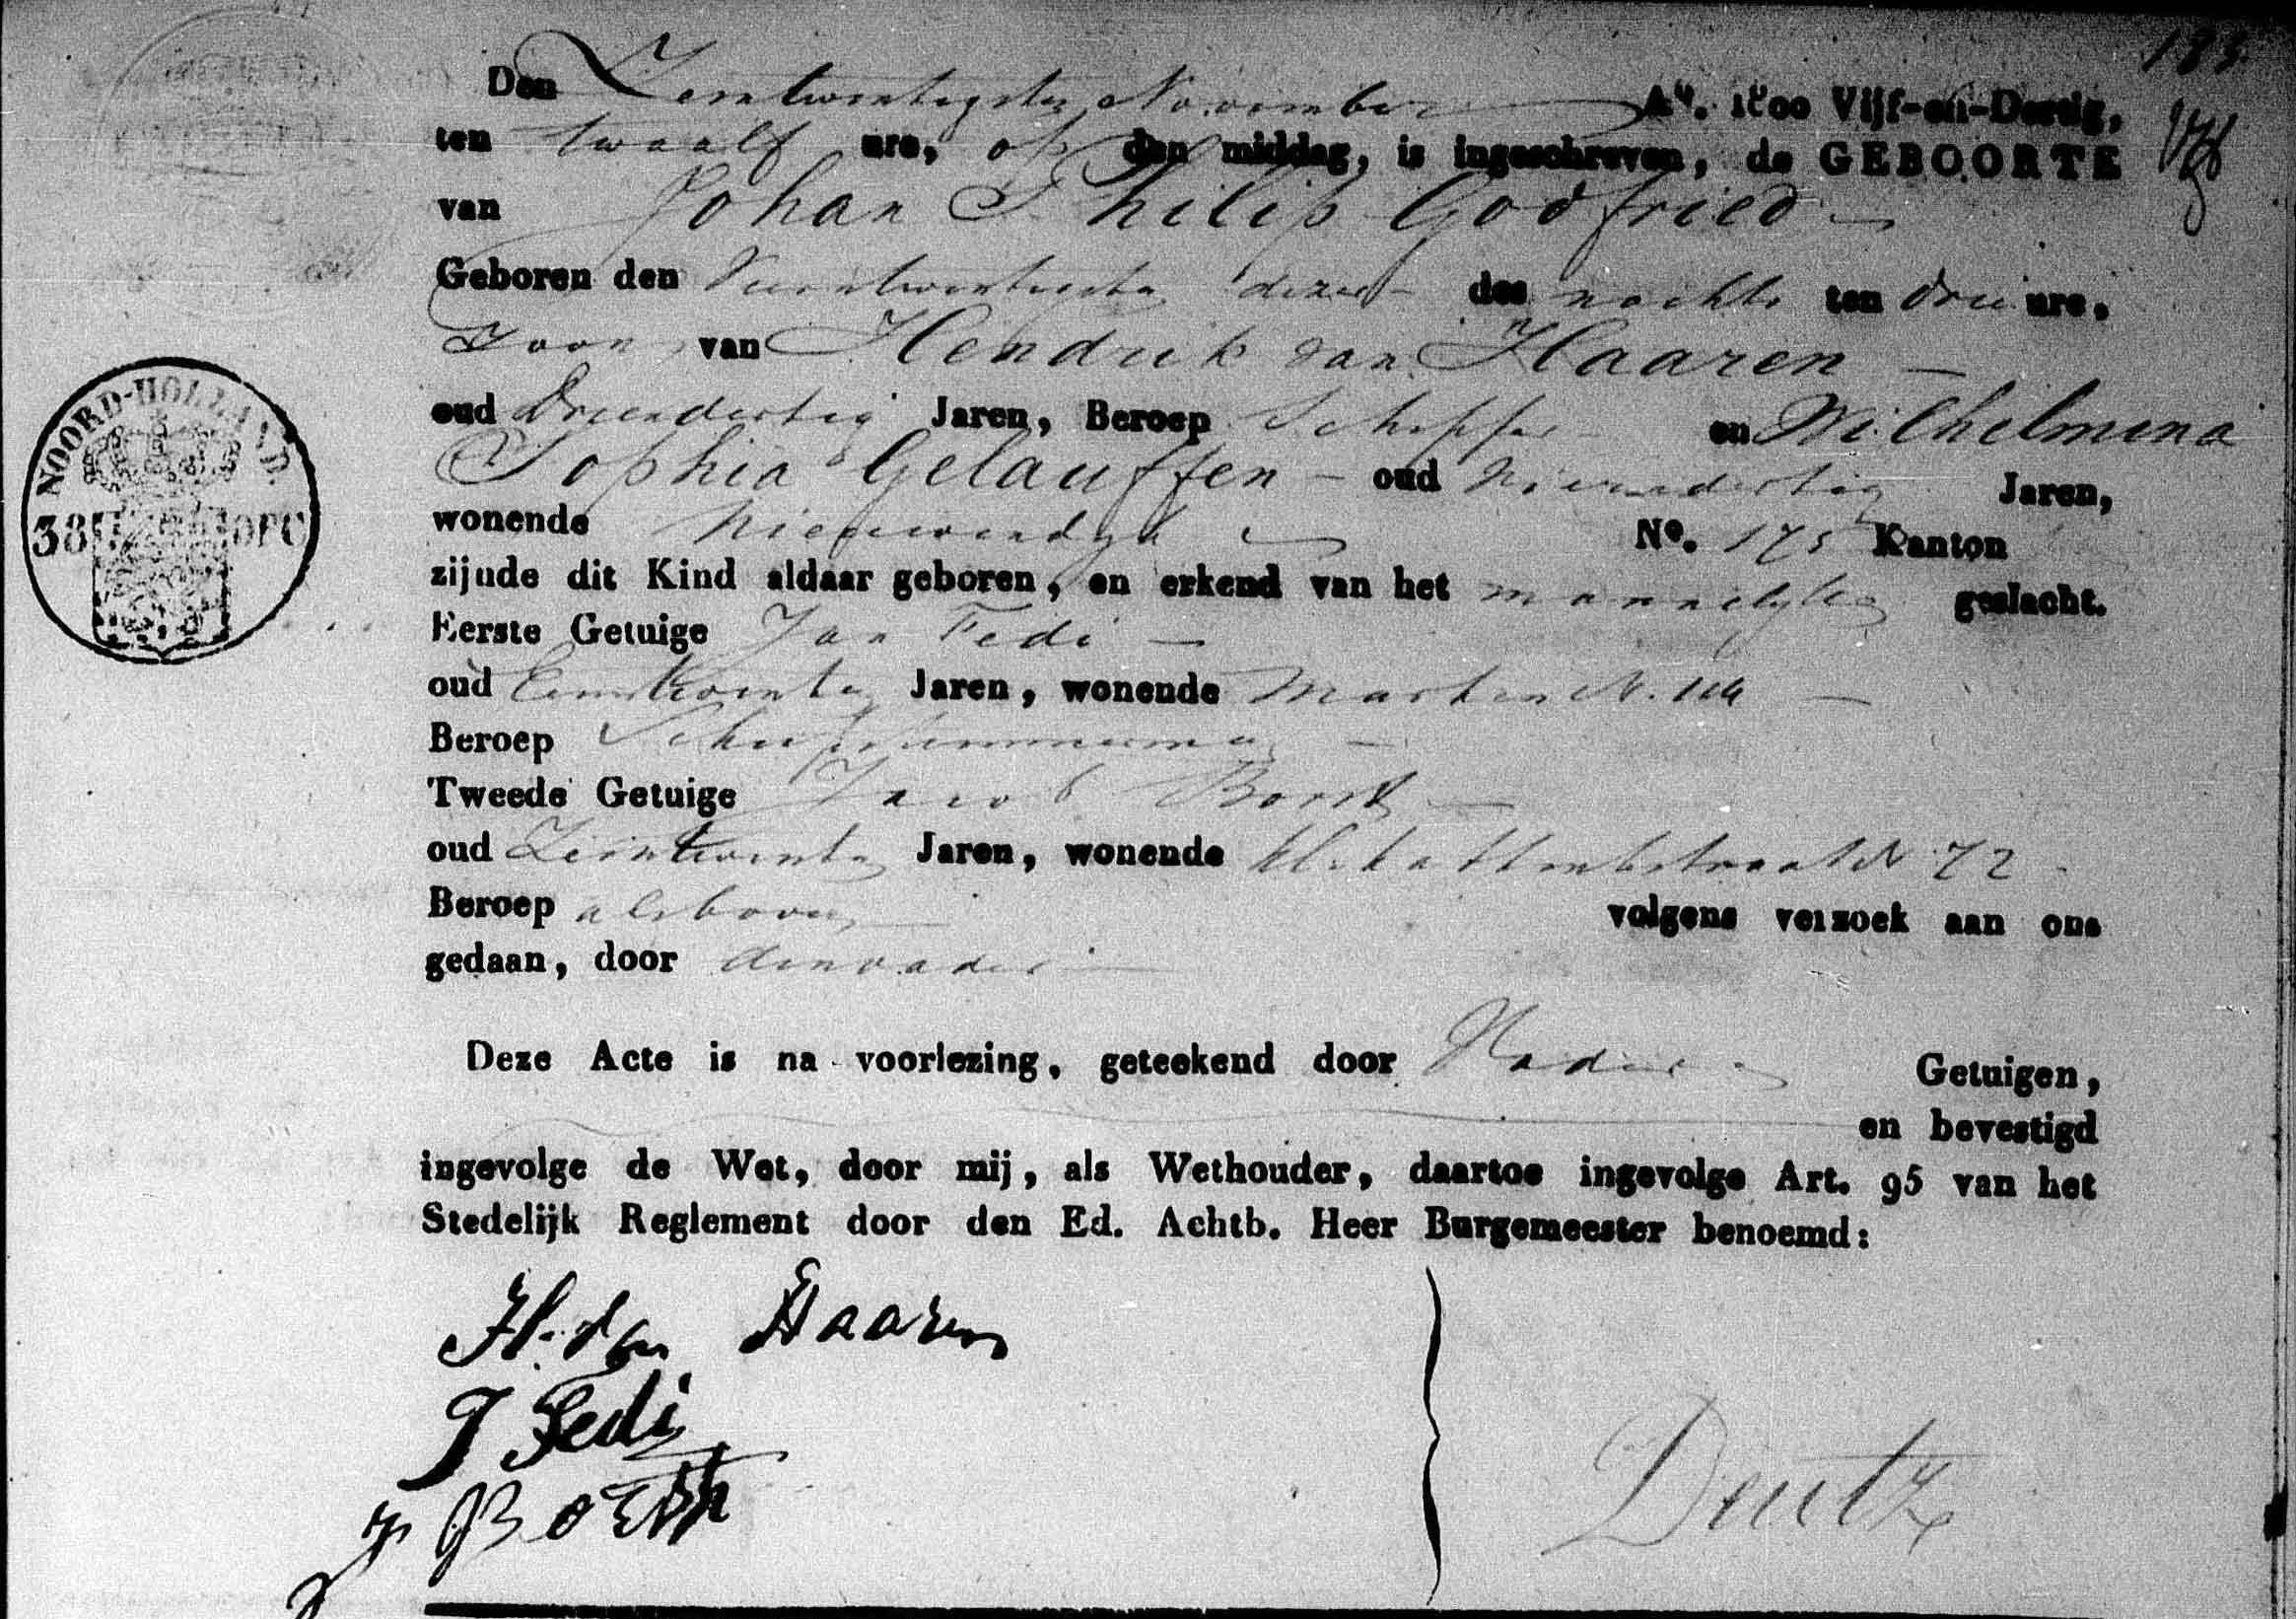 183.
Den Zesentwintigsten November A°. 1800 Vijf-en-Dertig,
ten twaalf ure, op den middag, is ingeschreven, de GEBOORTE
van Johan Philip Godfried
Geboren den Vierentwintigsten dezer des nachts ten drie ure,
Zoon van Hendrik van Haaren
oud Drieendertig Jaren, Beroep Schipper en Wilhelmina
Sophia Gelauffen oud Jaren,
wonende Nieuwendyk N°. 175 Kanton
NOORD-HOLLAND
zijnde dit Kind aldaar geboren, en erkend van het mannelyke geslacht.
Eerste Getuige Jan Fedi
oud Jaren, wonende Marken N.
Beroep
Tweede Getuige Jacob Borst
oud Jaren, wonende N 72
Beroep als boven volgens verzoek aan ons
gedaan, door den vader
Deze Acte is na voorlezing, geteekend door Vader Getuigen,
en bevestigd
ingevolge de Wet, door mij, als Wethouder, daartoe ingevolge Art. 95 van het
Stedelijk Reglement door den Ed. Achtb. Heer Burgemeester benoemd:
H. van Haaren
J Fedi
J Borst
Deutz